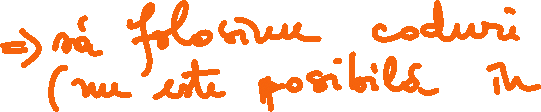 => să folosim coduri
(nu este posibilă în